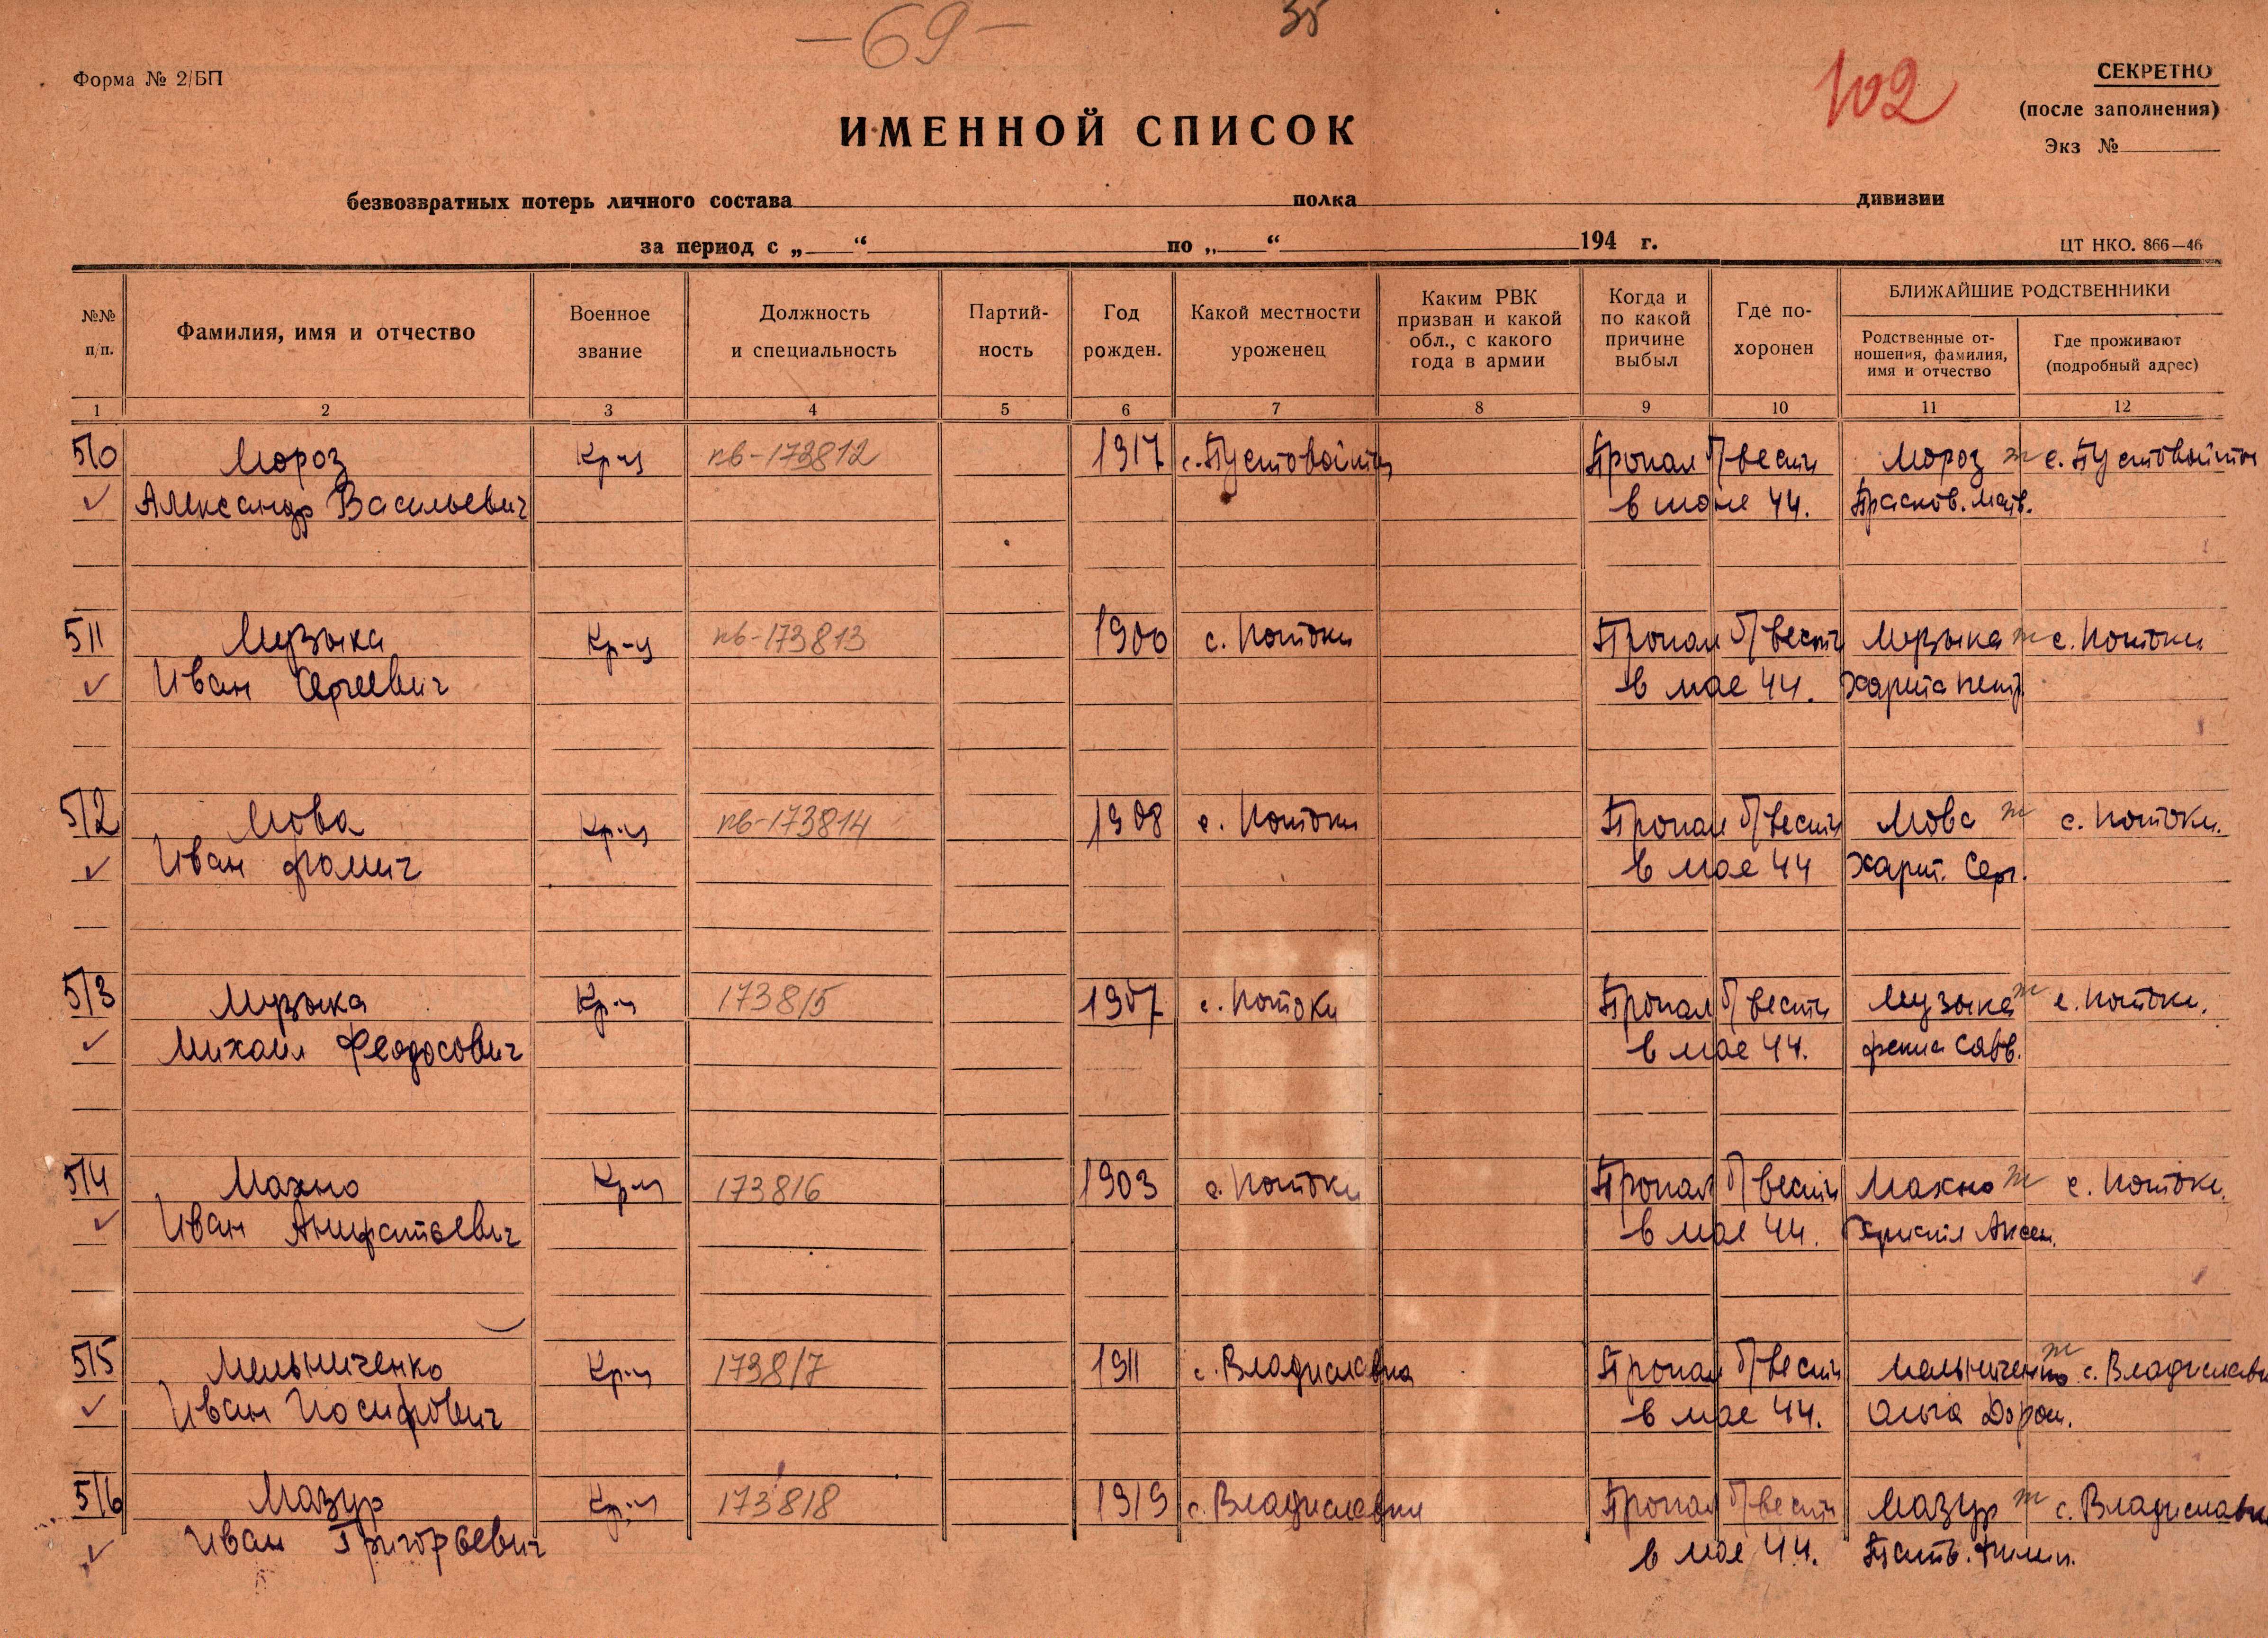 — 69 —
35
Форма № 2/БП
102
СЕКРЕТНО
(после заполнения)
Экз №
ИМЕННОЙ СПИСОК
безвозвратных потерь личного состава полка дивизии
за период с „ “ по „ “ 194 г.
ЦТ НКО. 866—46
№№ п/п.
Фамилия, имя и отчество
Военное звание
Должность и специальность
Партий-ность
Год рожден.
Какой местности уроженец
Каким РВК призван и какой обл., с какого года в армии
Когда и по какой причине выбыл
Где по-хоронен
БЛИЖАЙШИЕ РОДСТВЕННИКИ
Родственные от-ношения, фамилия, имя и отчество
Где проживают (подробный адрес)
1 2 3 4 5 6 7 8 9 10 11 12
510 Мороз Кр-ц пв-173812 1917 с. Пустовойты Пропал б/вести Мороз ж с. Пустовойты
✓ Александр Васильевич в июне 44. Прасков. Матв.
511 Музыка Кр-ц пв-173813 1900 с. Потоки Пропал б/вести Музыка ж с. Потоки
✓ Иван Сергеевич в мае 44. Харита Петр.
512 Мова Кр-ц пв-173814 1908 с. Потоки Пропал б/вести Мова ж с. Потоки.
✓ Иван Фомич в мае 44 Харит. Серг.
513 Музыка Кр-ц 173815 1907 с. Потоки Пропал б/вести Музыка ж с. Потоки.
✓ Михаил Феодосович в мае 44. Савв.
514 Махно Кр-ц 173816 1903 с. Потоки Пропал б/вести Махно ж с. Потоки.
✓ Иван Анифатьевич в мае 44. Христя Аксен.
515 Мельниченко Кр-ц 173817 1911 с. Владиславка Пропал б/вести Мельниченко ж с. Владиславка
✓ Иван Иосифович в мае 44. Ольга Дороф.
516 Мазур Кр-ц 173818 1919 с. Владиславка Пропал б/вести Мазур ж с. Владиславка
✓ Иван Григорьевич в мае 44. Филип.